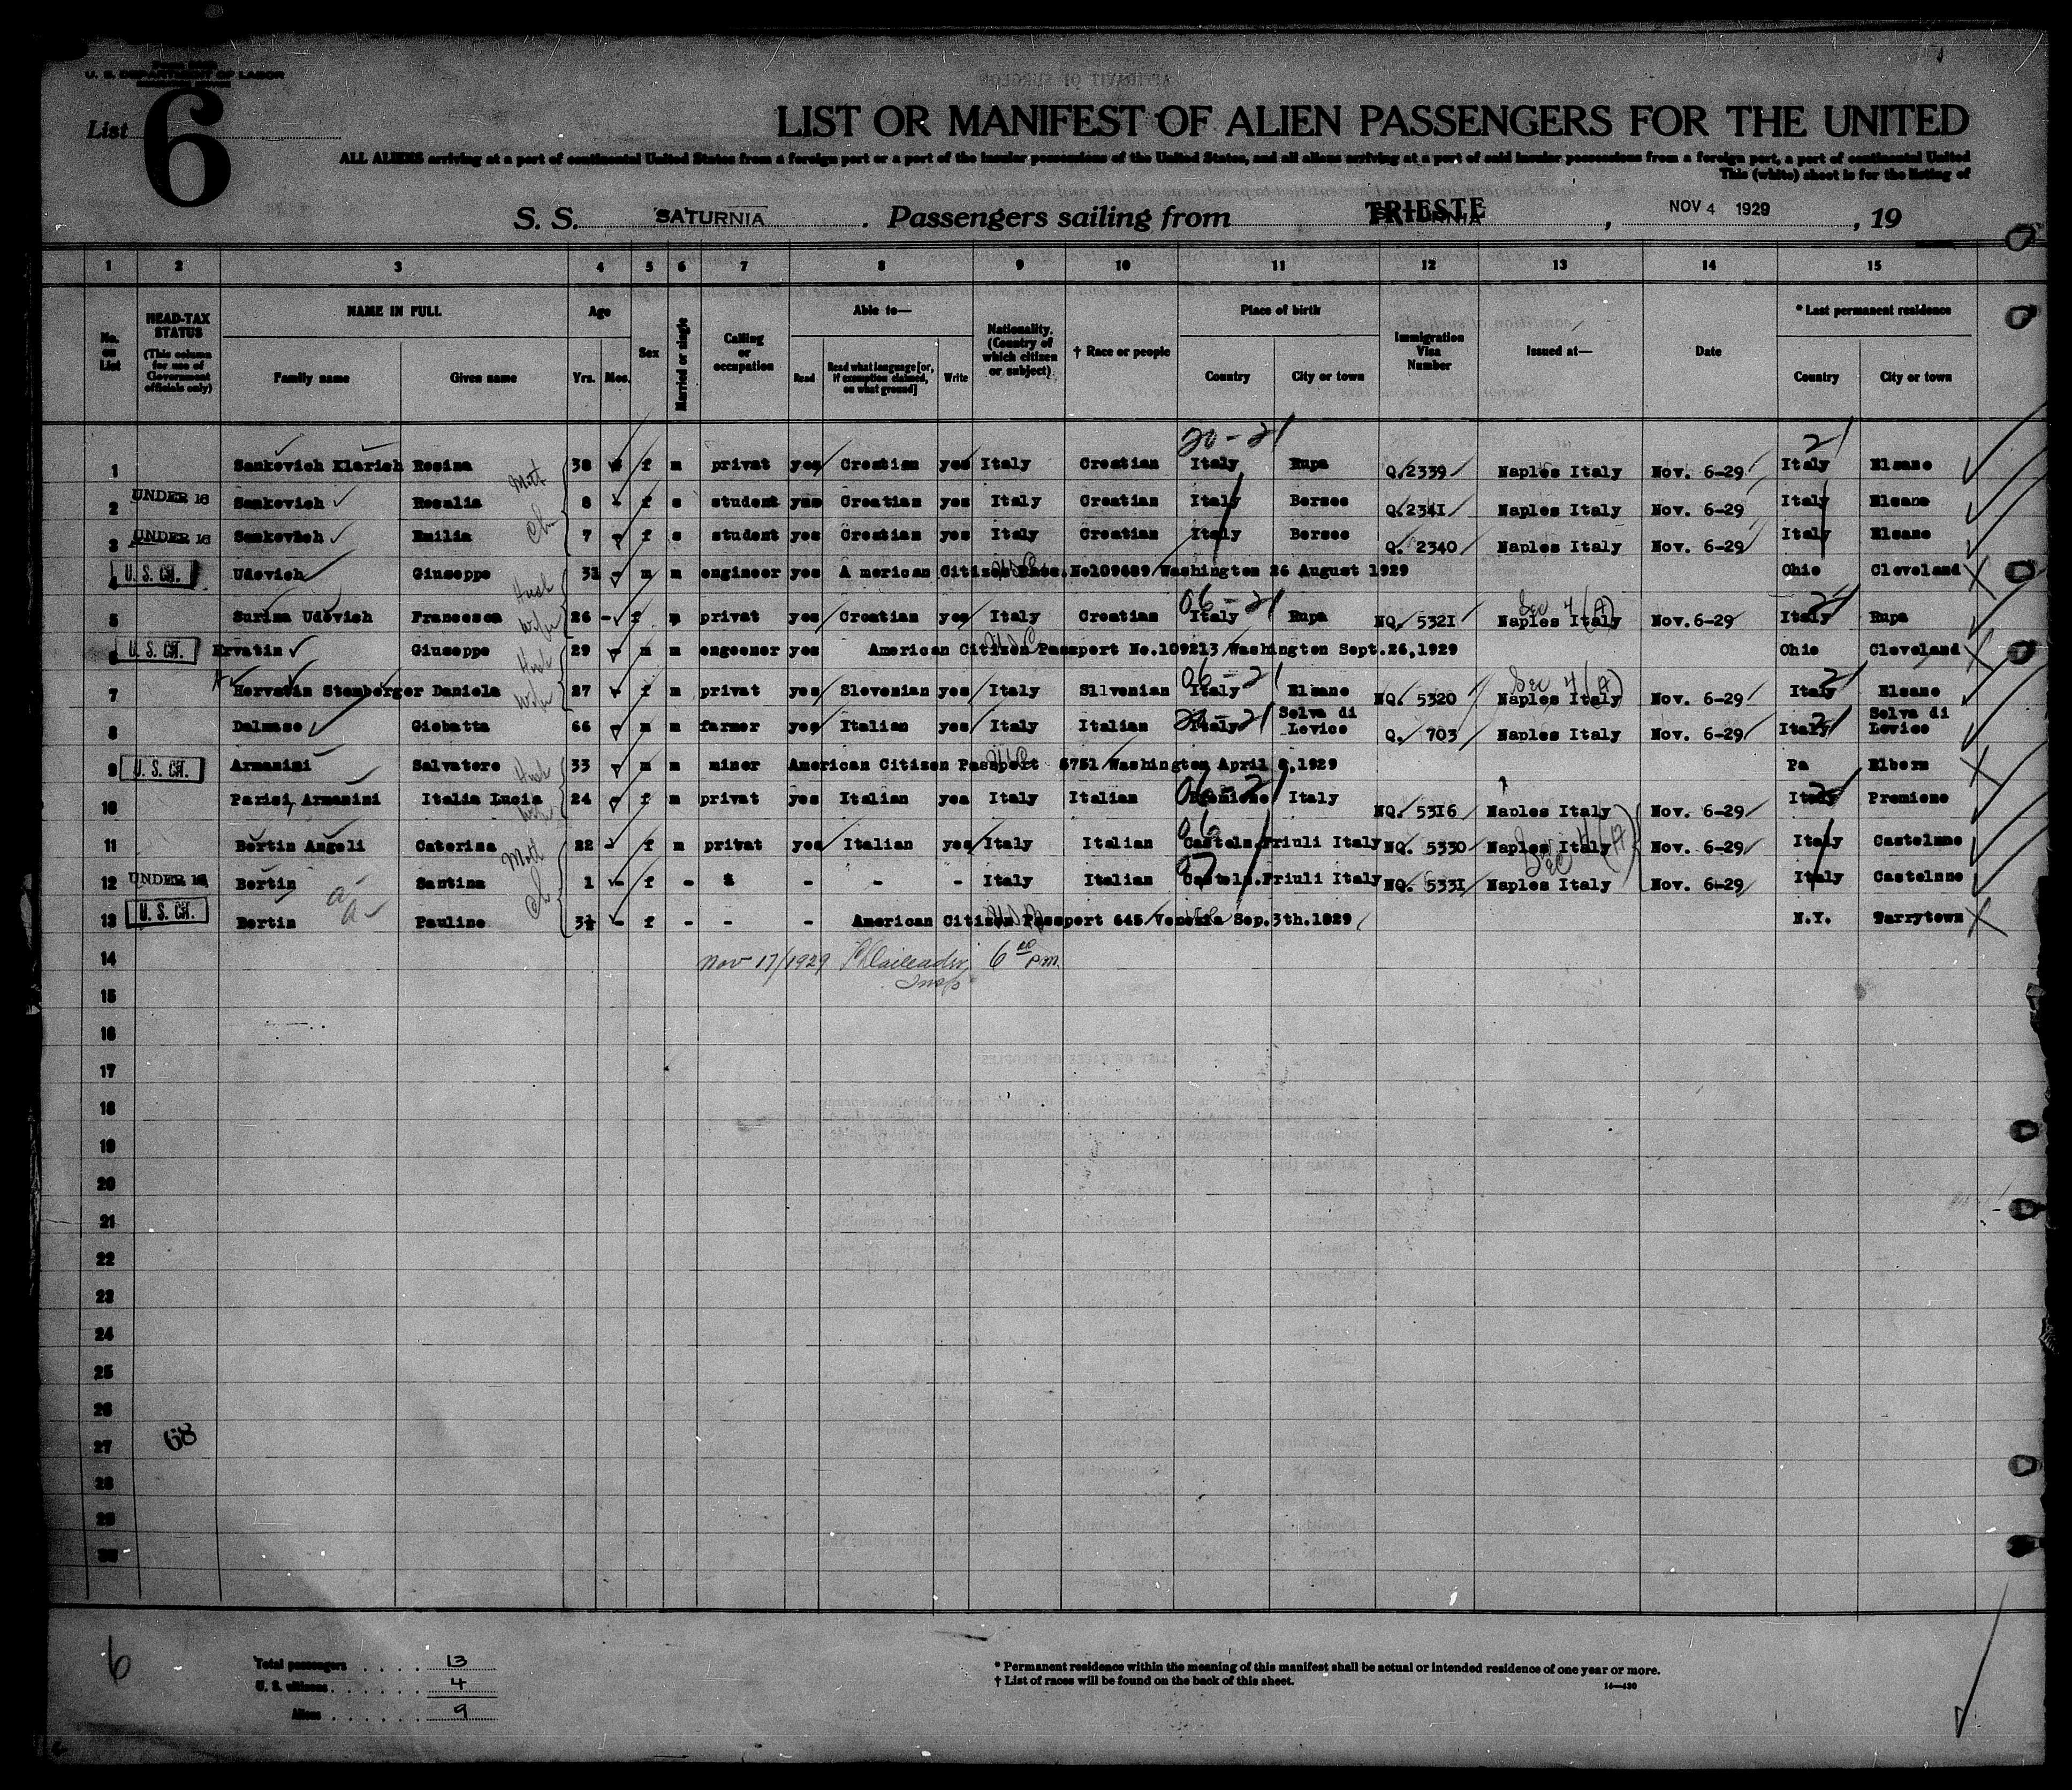 U. S. DEPARTMENT OF LABOR
List 6
LIST OR MANIFEST OF ALIEN PASSENGERS FOR THE UNITED
ALL ALIENS arriving at a port of continental United States from a foreign port or a port of the insular possessions of the United States, and all aliens arriving at a port of said insular possessions from a foreign port, a port of continental United
This (white) sheet is for the listing of
S. S. SATURNIA. Passengers sailing from TRIESTE, NOV 4 1929, 19
1 2 3 4 5 6 7 8 9 10 11 12 13 14 15
No. on List
HEAD-TAX STATUS (This column for use of Government officials only)
NAME IN FULL
Family name Given name
Age
Yrs. Mos.
Sex
Married or single
Calling or occupation
Able to—
Read Read what language [or, if exemption claimed, on what ground] Write
Nationality. (Country of which citizen or subject)
† Race or people
Place of birth
Country City or town
Immigration Visa Number
Issued at—
Date
* Last permanent residence
Country City or town
20-21 21
1 Sankovich Klarich Rosina Moth 38 f m privat yes Croatian yes Italy Croatian Italy Rupa Q.2339 Naples Italy Nov. 6-29 Italy Elsane
2 UNDER 16 Sankovich Rosalia 8 - f s student yes Croatian yes Italy Croatian Italy Bersec Q.2341 Naples Italy Nov. 6-29 Italy Elsane
3 UNDER 16 Sankovich Emilia Ch 7 - f s student yes Croatian yes Italy Croatian Italy Bersec Q. 2340 Naples Italy Nov. 6-29 Italy Elsane
4 U. S. CIT. Udovich Giuseppe Husb 31 - m m engineer yes A merican Citizen Pass. No109689 Washington 26 August 1929 Ohio Cleveland
5 Surina Udovich Francesca Wife 26 - f m privat yes Croatian yes Italy Croatian 06-21 Italy Rupa NQ. 5321 Sec 4 (A) Naples Italy Nov.6-29 Italy Rupa
6 U. S. CIT. Ervatin Giuseppe Husb 29 - m m engeener yes American Citizen Passport No.109213 Washington Sept.26,1929 Ohio Cleveland
7 Hervatin Stemberger Daniela Wife 27 - f m privat yes Slovenian yes Italy Sllvenian 06-21 Italy Elsane NQ. 5320 Sec 4 (A) Naples Italy Nov. 6-29 Italy Elsane
8 Dalmaso Giobatta 66 - m m farmer yes Italian yes Italy Italian Italy Selva di Levico Q. 703 Naples Italy Nov. 6-29 Italy Selva di Levico
9 U. S. CIT. Armanini Salvatore Husb 33 - m m miner American Citizen Passport 6751 Washington April 6,1929 Pa Elbern
10 Parisi Armanini Italia Lucia Wife 24 - f m privat yes Italian yes Italy Italian 06-21 Premione Italy NQ. 5316 Naples Italy Nov. 6-29 Italy Premione
11 Bertin Angeli Caterina Moth 22 - f m privat yes Italian yes Italy Italian 06 Casteln. Friuli Italy NQ. 5330 Naples Italy Sec 4 (A) Nov. 6-29 Italy Castelnno
12 UNDER 16 Bertin Santina 1 - f - - - - Italy Italian Casteln. Friuli Italy NQ. 5331 Naples Italy Nov. 6-29 Italy Castelnno
13 U. S. CIT. Bertin Pauline Ch 3½ - f - - - American Citizen Passport 645 Venezia Sep.3th.1929 N.Y. Tarrytown
14 Nov 17/1929 Insp 6 00 P.M.
15
16
17
18
19
20
21
22
23
24
25
26
27 68
28
29
30
6
Total passengers . . . . . 13
U. S. citizens . . . . . . 4
Aliens . . . . . . 9
* Permanent residence within the meaning of this manifest shall be actual or intended residence of one year or more.
† List of races will be found on the back of this sheet.
14—430